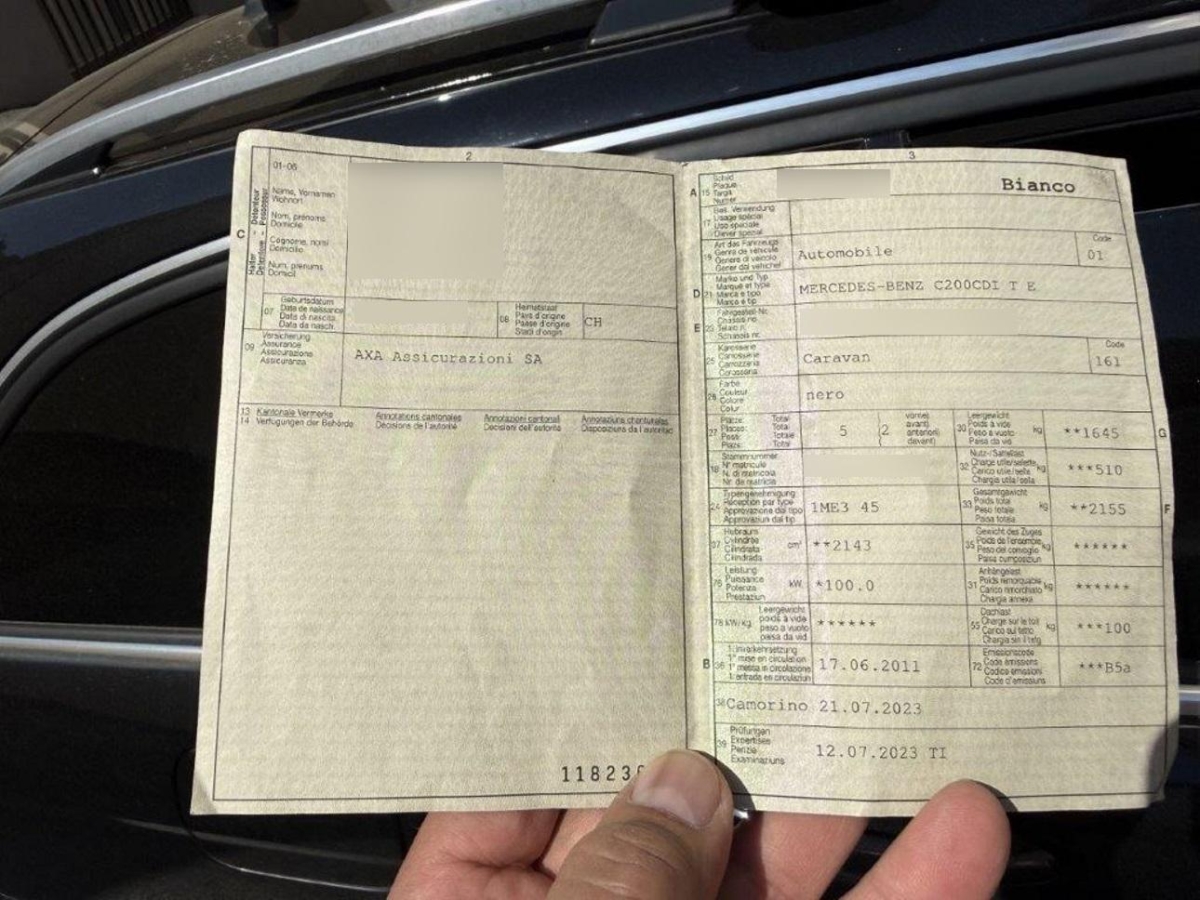 2
01-06
C
Halter - Détenteur
Detentore - Possessur
Name, Vornamen
Wohnort
Nom, prénoms
Domicile
Cognome, nomi
Domicilio
Num, prenums
Domicil
07
Geburtsdatum
Date de naissance
Data di nascita
Data da nasch.
08
Heimatstaat
Pays d'origine
Paese d'origine
Stadi d'origin
CH
09
Versicherung
Assurance
Assicurazione
Assicuranza
AXA Assicurazioni SA
13 Kantonale Vermerke
14 Verfügungen der Behörde
Annotations cantonales
Décisions de l'autorité
Annotazioni cantonali
Decisioni dell'autorità
Annotaziuns chantunalas
Disposiziuns da l'autoritad
118230
3
A 15
Schild
Plaque
Targa
Numer
Bianco
17
Bes. Verwendung
Usage spécial
Uso speciale
Diever spezial
19
Art des Fahrzeugs
Genre de véhicule
Genere di veicolo
Gener dal vehichel
Automobile
Code
01
D 21
Marke und Typ
Marque et type
Marca e tipo
Marca e tip
MERCEDES-BENZ C200CDI T E
E 23
Fahrgestell-Nr.
Châssis no
Telaio n.
Schassis nr.
25
Karosserie
Carrosserie
Carrozzeria
Carossaria
Caravan
Code
161
26
Farbe
Couleur
Colore
Colur
nero
27
Plätze: Total
Places: Total
Posti: Totale
Plazs: Total
5
2
vorne)
avant)
anteriori)
davant)
30
Leergewicht
Poids à vide
Peso a vuoto
Paisa da vid
kg
**1645
G
18
Stammnummer
N° matricule
N. di matricola
Nr. da matricla
32
Nutz-/Sattellast
Charge utile/sellette
Carico utile/sella
Chargia utila/sella
kg
***510
24
Typengenehmigung
Réception par type
Approvazione del tipo
Approvaziun dal tip
1ME3 45
33
Gesamtgewicht
Poids total
Peso totale
Paisa totala
kg
**2155
F
37
Hubraum
Cylindrée
Cilindrata
Cilindrada
cm³
**2143
35
Gewicht des Zuges
Poids de l'ensemble
Peso del convoglio
Paisa cumposiziun
kg
******
76
Leistung
Puissance
Potenza
Prestaziun
kW
*100.0
31
Anhängelast
Poids remorquable
Carico rimorchiato
Chargia annexa
kg
******
78 kW/kg
Leergewicht
poids à vide
peso a vuoto
paisa da vid
******
55
Dachlast
Charge sur le toit
Carico sul tetto
Chargia sin il tetg
kg
***100
B 36
1. Inverkehrsetzung
1re mise en circulation
1a messa in circolazione
1. entrada en circulaziun
17.06.2011
72
Emissionscode
Code émissions
Codice emissioni
Code d'emissiuns
***B5a
38 Camorino 21.07.2023
39
Prüfungen
Expertises
Perizie
Examinaziuns
12.07.2023 TI